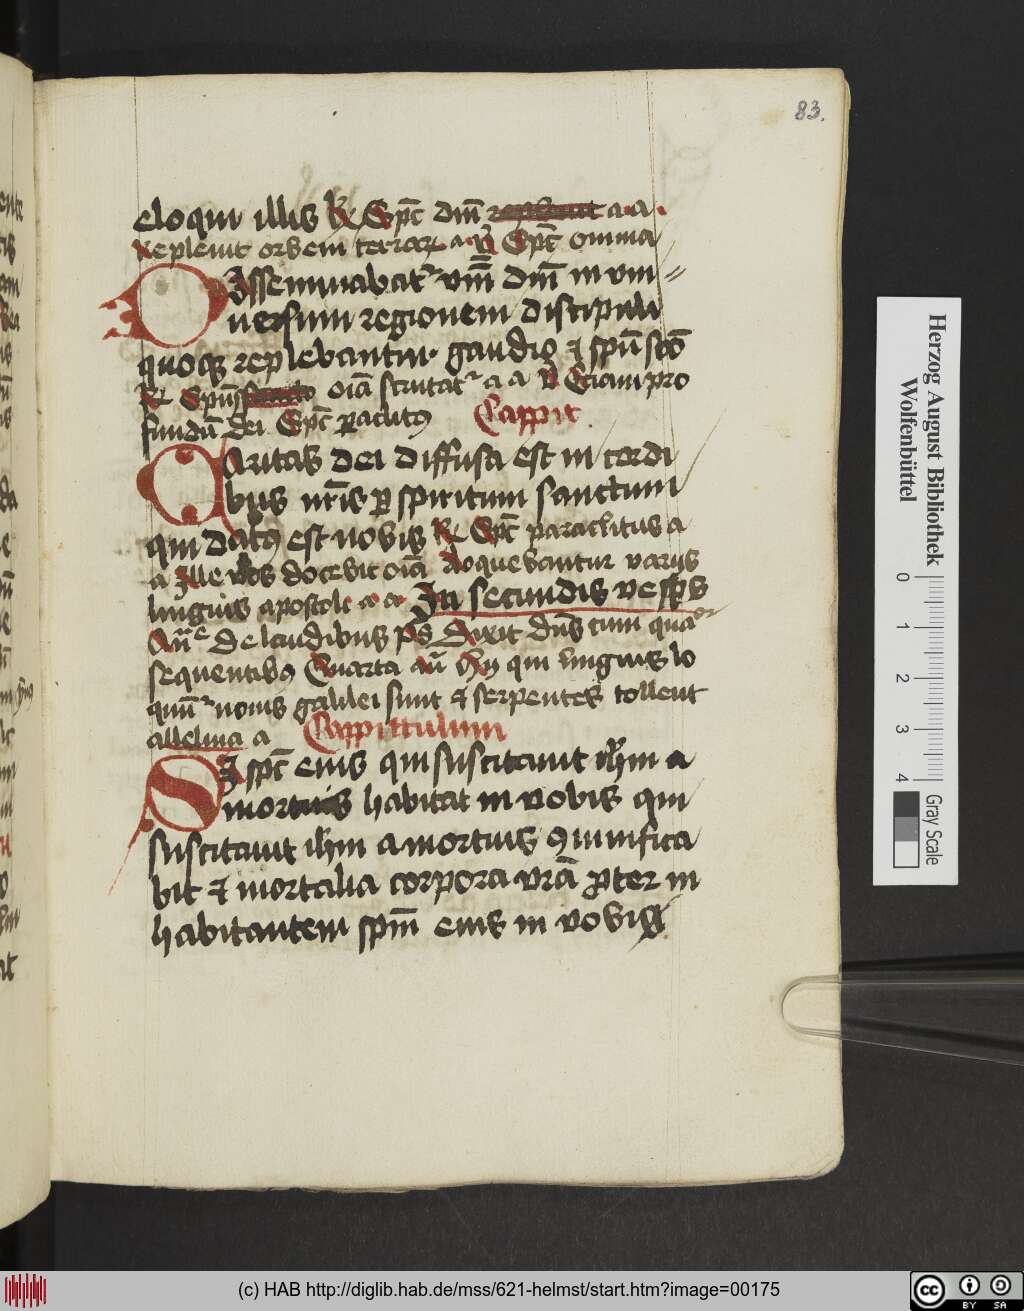 83.
eloqui illis ℟ Spc̄ dm̄ a a
Repleuit orbem terrarꝝ a ℣ Spc̄ omnia
Disseminabat᷑ dm̄ in vni⸗
uersum regionem discipuli
quoqꝫ replebantur gaudio ⁊ spū scō
℟ Spūs oīa scrutat᷑ a a ℣ Eciam pro
fundū dei Spc̄ ꝑaclitꝰ Cappit.
Caritas dei diffusa est in cordi
bus nr̄is ꝑ spiritum sanctum
qui datꝰ est nobis ℟ Spc̄ paraclitus a
a Ille vos docebit oīa Loquebantur varijs
linguis apostoli a a In secundis vesp̄s
Añe De laudibus ps̄ Dixit dn̄s cum
sequentibꝰ Quarta añ hij qui linguis lo
quūt᷑ nouis galilei sunt ⁊ serpentes tollent
alleluia a Cappittulum
SI spc̄ eius qui suscitauit ih̄m a
mortuis habitat in vobis qui
suscitauit ih̄m a mortuis ꝯviuifica
bit ⁊ mortalia corpora vrā ꝓter in
habitantem spm̄ eius in vobis
Herzog August Bibliothek
Wolfenbüttel
0 1 2 3 4
Gray Scale
(c) HAB http://diglib.hab.de/mss/621-helmst/start.htm?image=00175
cc BY SA